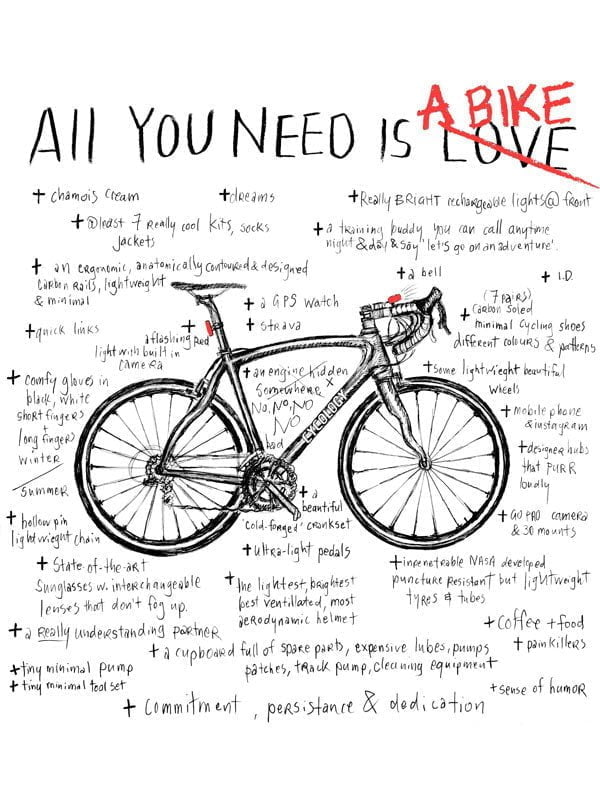 All YOU NEED IS LOVE
A BIKE
+ chamois cream
+ dreams
+ Really BRIGHT rechargeable lights @ front
+ @least 7 Really cool kits, socks
jackets
+ a training buddy you can call anytime
night & day & say 'let's go on an adventure'.
+ an ergonomic, anatomically contoured & designed
carbon rails, lightweight
& minimal
+ a bell
+ I.D.
+ a GPS watch
+ strava
+ (7 PAIRS)
carbon soled
minimal cycling shoes
different colours & patterns
+ quick links
+ a flashing red
light with built in
camera
+ an engine hidden
somewhere x
No, No, NO
NO
bad
+ some lightweight beautiful
wheels
+ comfy gloves in
black, white
short fingers
+
long fingers
winter
summer
CYCOLOGY
+ mobile phone
& instagram
+ designer hubs
that PURR
loudly
+ a
beautiful
'cold-forged' crankset
+ GO PRO camera
& 30 mounts
+ hollow pin
lightweight chain
+ ultra-light pedals
+ State-of-the-art
Sunglasses w. interchangeable
lenses that don't fog up.
+ the lightest, brightest
best ventillated, most
aerodynamic helmet
+ inpenetrable NASA developed
puncture resistant but lightweight
tyres & tubes
+ a Really understanding partner
+ coffee + food
+ a cupboard full of spare parts, expensive lubes, pumps
patches, track pump, cleaning equipment
+ painkillers
+ tiny minimal pump
+ tiny minimal tool set
+ sense of humor
+ commitment, persistance & dedication